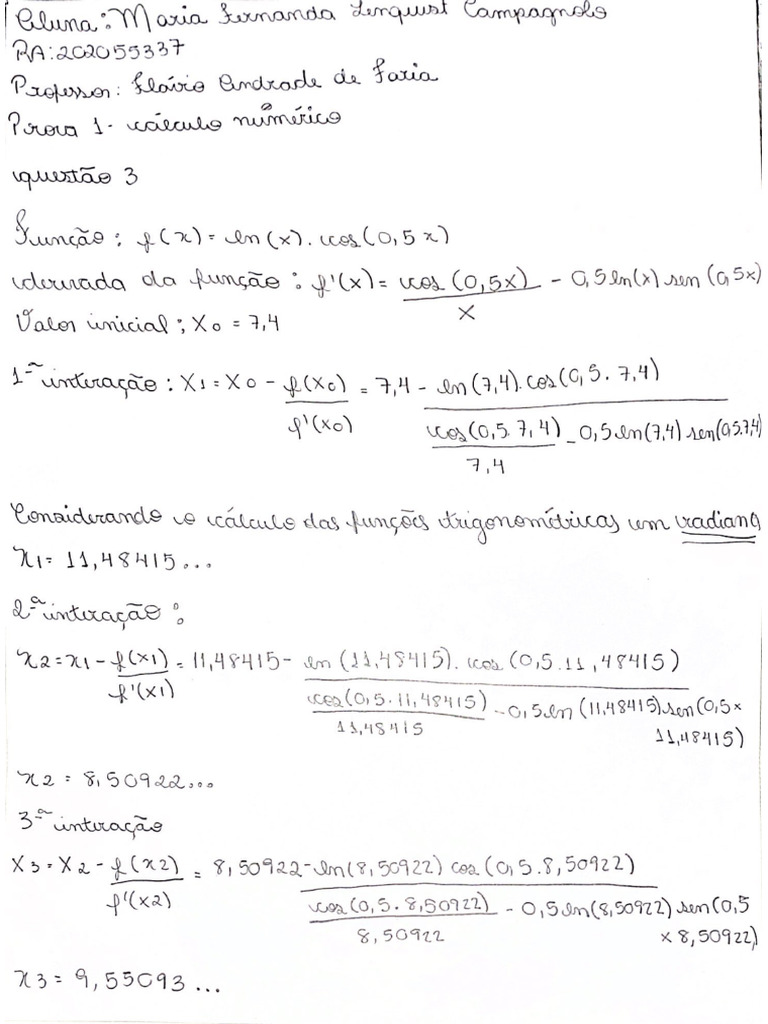 Aluna: Maria Fernanda Lenquist Campagnolo
RA: 202055337
Professor: Flávio Andrade de Faria
Prova 1 - cálculo numérico
questão 3
Função: f(x) = ln(x). cos(0,5x)
derivada da função: f'(x) = cos(0,5x)/x - 0,5 ln(x) sen(0,5x)
Valor inicial; X0 = 7,4
1ª interação: X1 = X0 - f(X0)/f'(X0) = 7,4 - ln(7,4). cos(0,5. 7,4)/(cos(0,5. 7,4)/7,4 - 0,5 ln(7,4) sen(0,5.7,4)
Considerando o cálculo das funções trigonométricas em radiano
x1 = 11,48415...
2ª interação:
x2 = x1 - f(x1)/f'(x1) = 11,48415 - ln(11,48415). cos(0,5.11,48415)/(cos(0,5.11,48415)/11,48415 - 0,5 ln(11,48415) sen(0,5 ×
11,48415)
x2 = 8,50922...
3ª interação
X3 = X2 - f(x2)/f'(x2) = 8,50922 - ln(8,50922) cos(0,5.8,50922)/(cos(0,5.8,50922)/8,50922 - 0,5 ln(8,50922) sen(0,5
× 8,50922)
x3 = 9,55093...